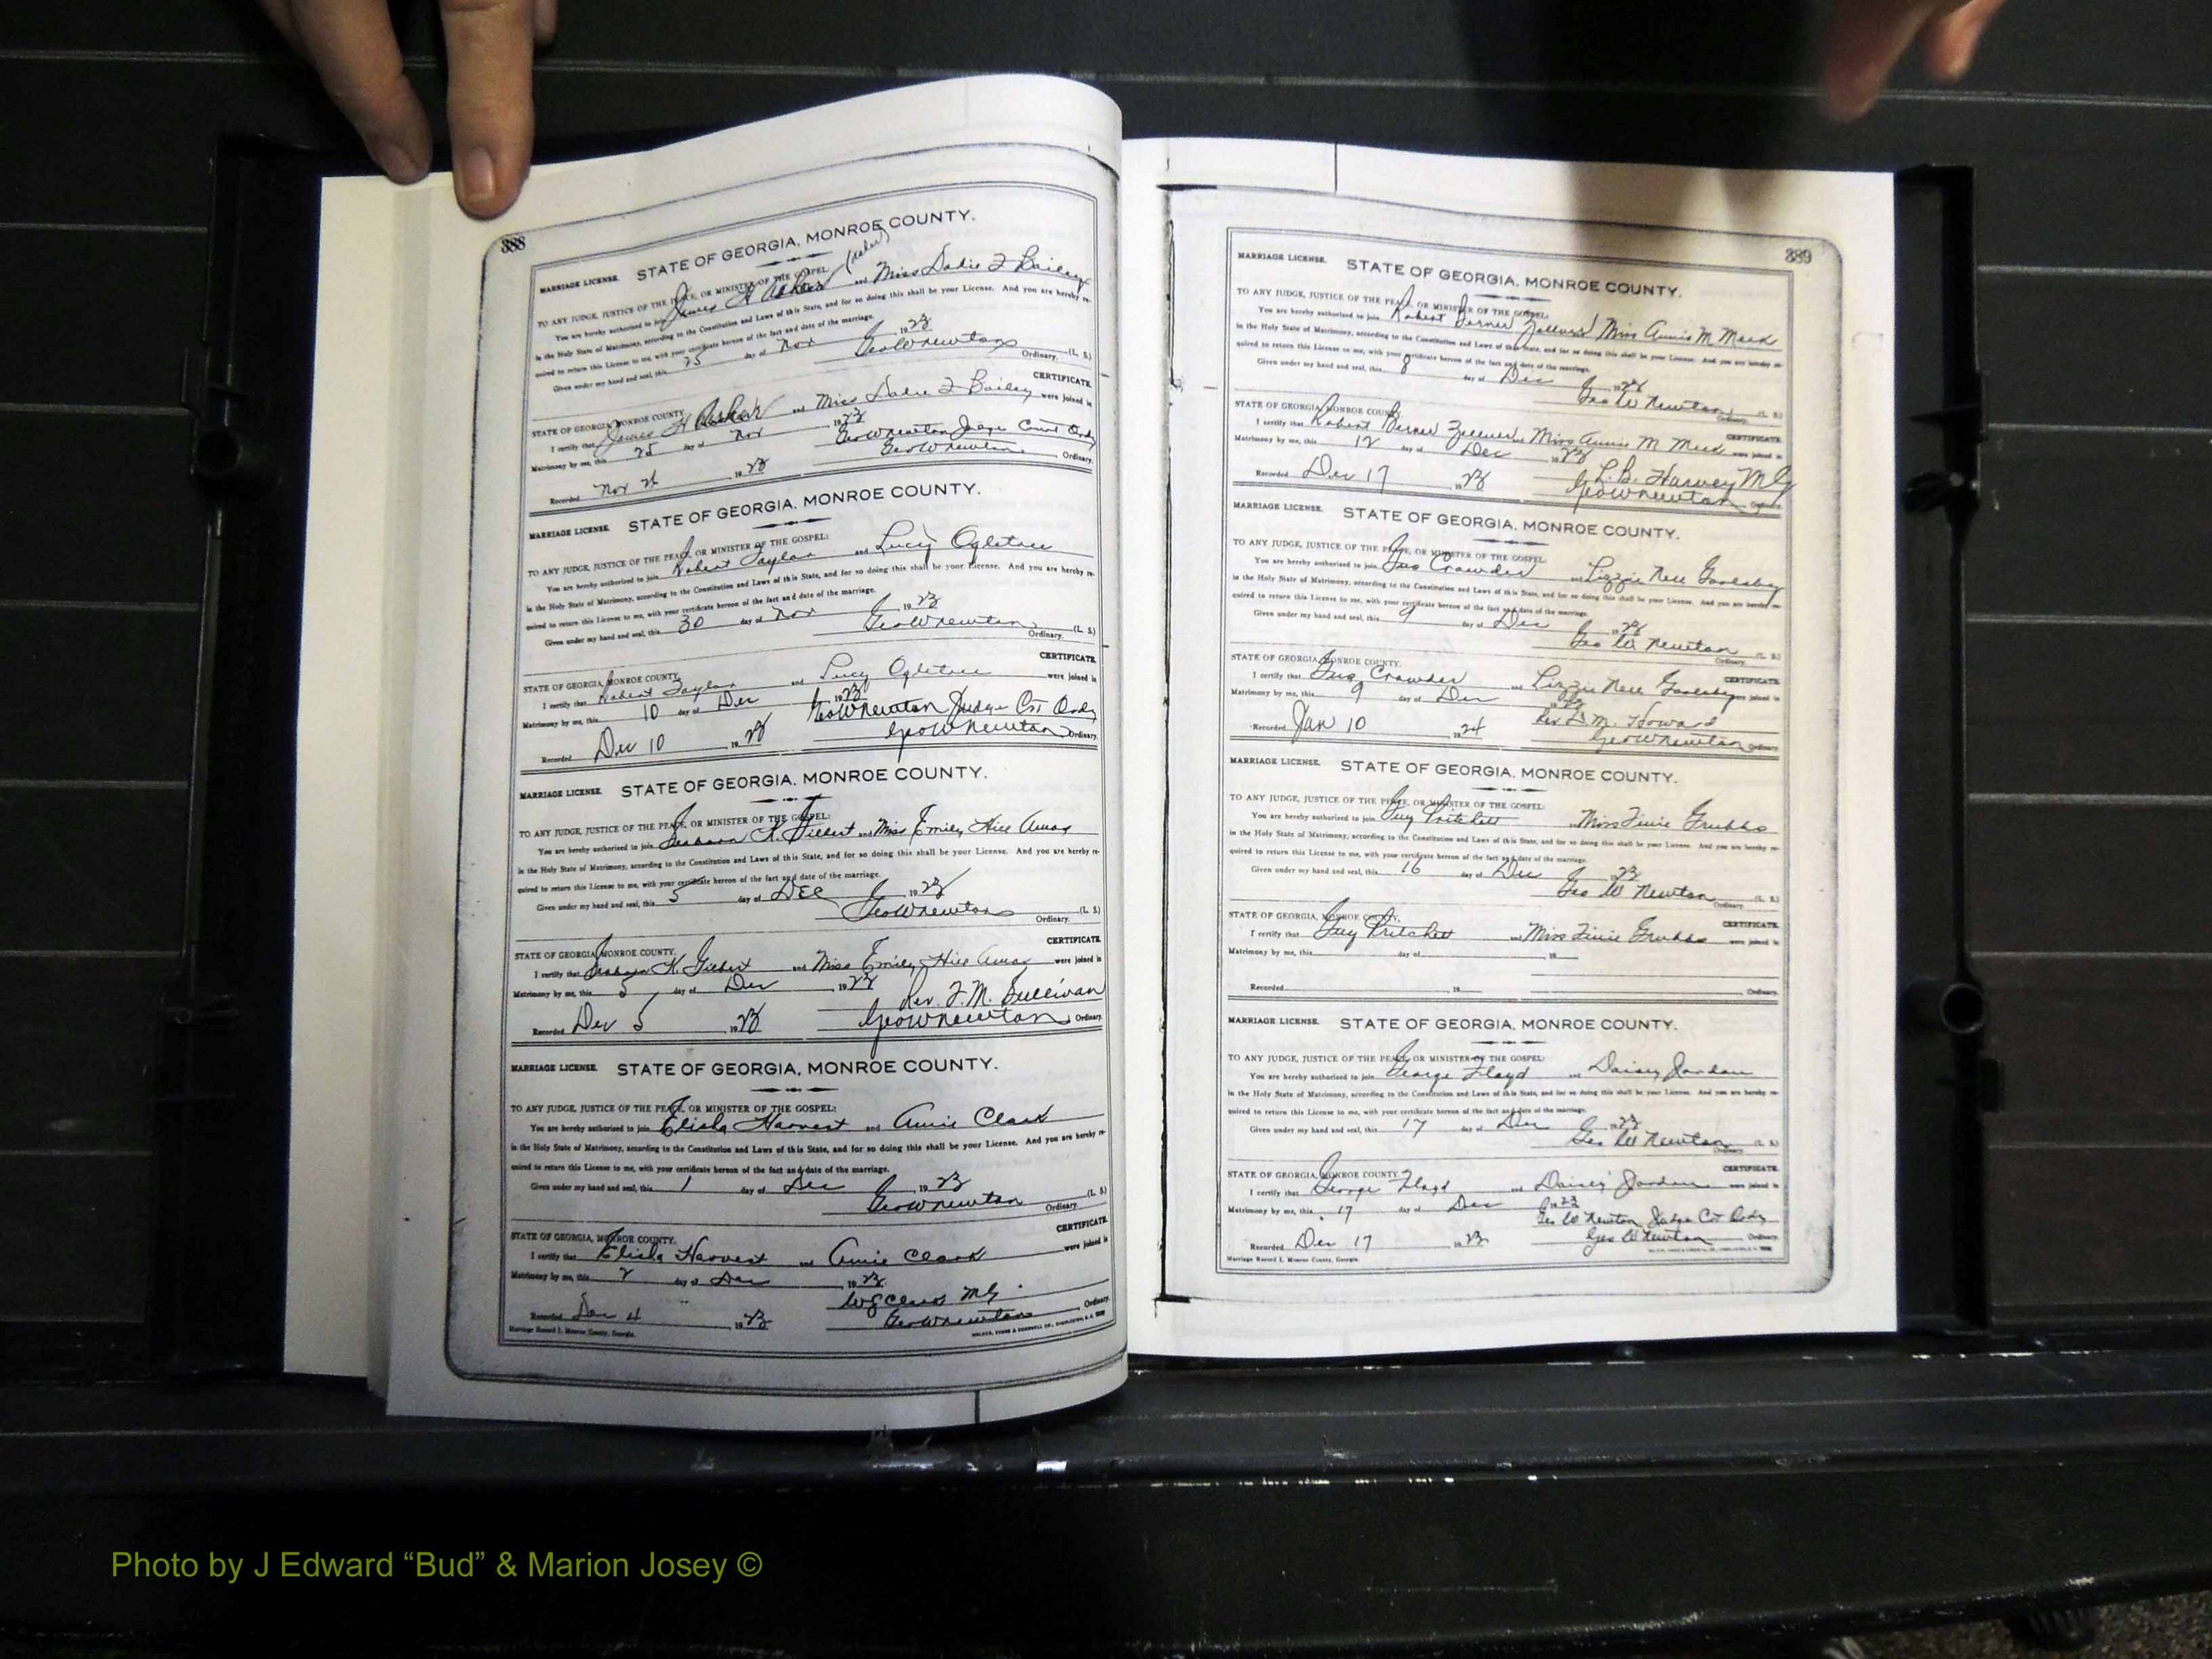 388
MARRIAGE LICENSE. STATE OF GEORGIA, MONROE COUNTY.
TO ANY JUDGE, JUSTICE OF THE PEACE, OR MINISTER OF THE GOSPEL:
You are hereby authorized to join James H and Miss Sadie F Bailey
in the Holy State of Matrimony, according to the Constitution and Laws of this State, and for so doing this shall be your License. And you are hereby re-
quired to return this License to me, with your certificate hereon of the fact and date of the marriage.
Given under my hand and seal, this 25 day of Nov 1923
Geo W Newton (L. S.)
Ordinary.
STATE OF GEORGIA, MONROE COUNTY. CERTIFICATE.
I certify that James H and Miss Sadie F Bailey were joined in
Matrimony by me, this 25 day of Nov 1923
Geo W Newton Judge Court Ordy
Recorded Nov 26 1923 Geo W Newton Ordinary.
MARRIAGE LICENSE. STATE OF GEORGIA, MONROE COUNTY.
TO ANY JUDGE, JUSTICE OF THE PEACE, OR MINISTER OF THE GOSPEL:
You are hereby authorized to join Robert Taylor and Lucy Ogletree
in the Holy State of Matrimony, according to the Constitution and Laws of this State, and for so doing this shall be your License. And you are hereby re-
quired to return this License to me, with your certificate hereon of the fact and date of the marriage.
Given under my hand and seal, this 30 day of Nov 1923
Geo W Newton (L. S.)
Ordinary.
STATE OF GEORGIA, MONROE COUNTY. CERTIFICATE.
I certify that Robert Taylor and Lucy Ogletree were joined in
Matrimony by me, this 10 day of Dec 1923
Geo W Newton Judge Crt Ordy
Recorded Dec 10 1923 Geo W Newton Ordinary.
MARRIAGE LICENSE. STATE OF GEORGIA, MONROE COUNTY.
TO ANY JUDGE, JUSTICE OF THE PEACE, OR MINISTER OF THE GOSPEL:
You are hereby authorized to join K. Gilbert and Miss Emily Hill Amos
in the Holy State of Matrimony, according to the Constitution and Laws of this State, and for so doing this shall be your License. And you are hereby re-
quired to return this License to me, with your certificate hereon of the fact and date of the marriage.
Given under my hand and seal, this 5 day of Dec 1923
Geo W Newton (L. S.)
Ordinary.
STATE OF GEORGIA, MONROE COUNTY. CERTIFICATE.
I certify that K. Gilbert and Miss Emily Hill Amos were joined in
Matrimony by me, this 5 day of Dec 1923
Rev. F. M. Sullivan
Recorded Dec 5 1923 Geo W Newton Ordinary.
MARRIAGE LICENSE. STATE OF GEORGIA, MONROE COUNTY.
TO ANY JUDGE, JUSTICE OF THE PEACE, OR MINISTER OF THE GOSPEL:
You are hereby authorized to join Elisha Harvest and Annie Clark
in the Holy State of Matrimony, according to the Constitution and Laws of this State, and for so doing this shall be your License. And you are hereby re-
quired to return this License to me, with your certificate hereon of the fact and date of the marriage.
Given under my hand and seal, this 1 day of Dec 1923
Geo W Newton (L. S.)
Ordinary.
STATE OF GEORGIA, MONROE COUNTY. CERTIFICATE.
I certify that Elisha Harvest and Annie Clark were joined in
Matrimony by me, this 2 day of Dec 1923
M G
Recorded Dec 4 1923 Geo W Newton Ordinary.
Marriage Record I. Monroe County, Georgia.
389
MARRIAGE LICENSE. STATE OF GEORGIA, MONROE COUNTY.
TO ANY JUDGE, JUSTICE OF THE PEACE, OR MINISTER OF THE GOSPEL:
You are hereby authorized to join Robert Berner Zellner Miss Annie M
in the Holy State of Matrimony, according to the Constitution and Laws of this State, and for so doing this shall be your License. And you are hereby re-
quired to return this License to me, with your certificate hereon of the fact and date of the marriage.
Given under my hand and seal, this 8 day of Dec 1923
Geo W Newton (L. S.)
Ordinary.
STATE OF GEORGIA, MONROE COUNTY. CERTIFICATE.
I certify that Robert Berner Zellner Miss Annie M were joined in
Matrimony by me, this 12 day of Dec 1923
L. B. Harvey M G
Recorded Dec 17 1923 Geo W Newton Ordinary.
MARRIAGE LICENSE. STATE OF GEORGIA, MONROE COUNTY.
TO ANY JUDGE, JUSTICE OF THE PEACE, OR MINISTER OF THE GOSPEL:
You are hereby authorized to join Gus Crowder and Lizzie Nell Goolsby
in the Holy State of Matrimony, according to the Constitution and Laws of this State, and for so doing this shall be your License. And you are hereby re-
quired to return this License to me, with your certificate hereon of the fact and date of the marriage.
Given under my hand and seal, this 9 day of Dec 1923
Geo W Newton (L. S.)
Ordinary.
STATE OF GEORGIA, MONROE COUNTY. CERTIFICATE.
I certify that Gus Crowder and Lizzie Nell Goolsby were joined in
Matrimony by me, this 9 day of Dec 1923
Rev D. M. Howard
Recorded Jan 10 1924 Geo W Newton Ordinary.
MARRIAGE LICENSE. STATE OF GEORGIA, MONROE COUNTY.
TO ANY JUDGE, JUSTICE OF THE PEACE, OR MINISTER OF THE GOSPEL:
You are hereby authorized to join Guy Pritchett and Miss Grubbs
in the Holy State of Matrimony, according to the Constitution and Laws of this State, and for so doing this shall be your License. And you are hereby re-
quired to return this License to me, with your certificate hereon of the fact and date of the marriage.
Given under my hand and seal, this 16 day of Dec 1923
Geo W Newton (L. S.)
Ordinary.
STATE OF GEORGIA, MONROE COUNTY. CERTIFICATE.
I certify that Guy Pritchett and Miss Grubbs were joined in
Matrimony by me, this day of 19
Recorded 19 Ordinary.
MARRIAGE LICENSE. STATE OF GEORGIA, MONROE COUNTY.
TO ANY JUDGE, JUSTICE OF THE PEACE, OR MINISTER OF THE GOSPEL:
You are hereby authorized to join George Floyd and Daisey Jordan
in the Holy State of Matrimony, according to the Constitution and Laws of this State, and for so doing this shall be your License. And you are hereby re-
quired to return this License to me, with your certificate hereon of the fact and date of the marriage.
Given under my hand and seal, this 17 day of Dec 1923
Geo W Newton (L. S.)
Ordinary.
STATE OF GEORGIA, MONROE COUNTY. CERTIFICATE.
I certify that George Floyd and Daisey Jordan were joined in
Matrimony by me, this 17 day of Dec 1923
Geo W Newton Judge Crt Ordy
Recorded Dec 17 1923 Geo W Newton Ordinary.
Marriage Record I. Monroe County, Georgia.
Photo by J Edward “Bud” & Marion Josey ©